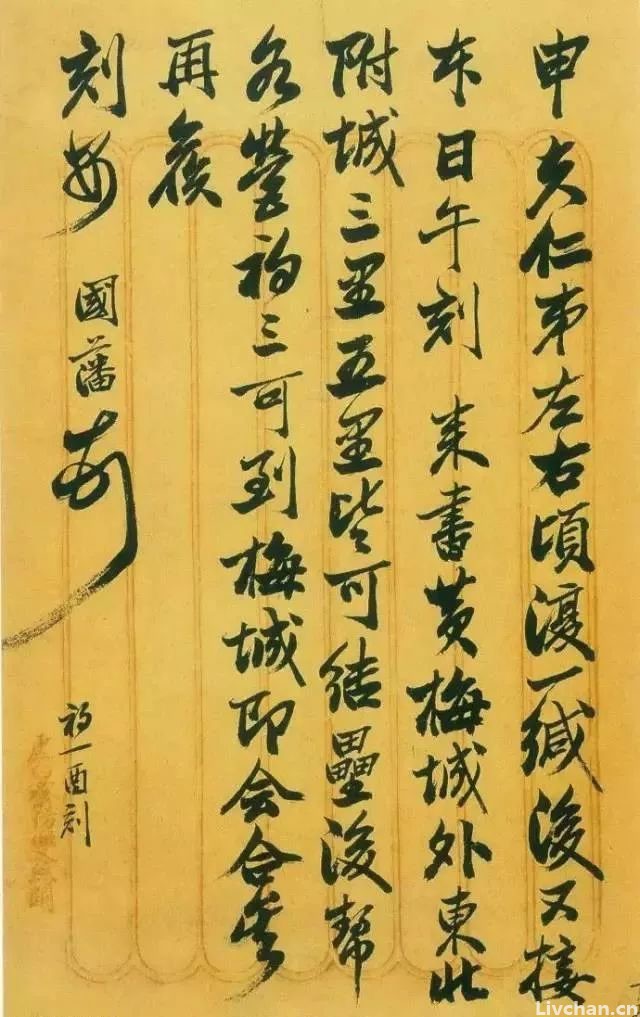 申夫仁弟左右頃渡一緘後又接
本日午刻 来書黄梅城外東北
附城三里五里皆可结壘後幫
各營初三可到梅城即会合矣
再候
刻安 國藩
初一酉刻
Livchan.cn